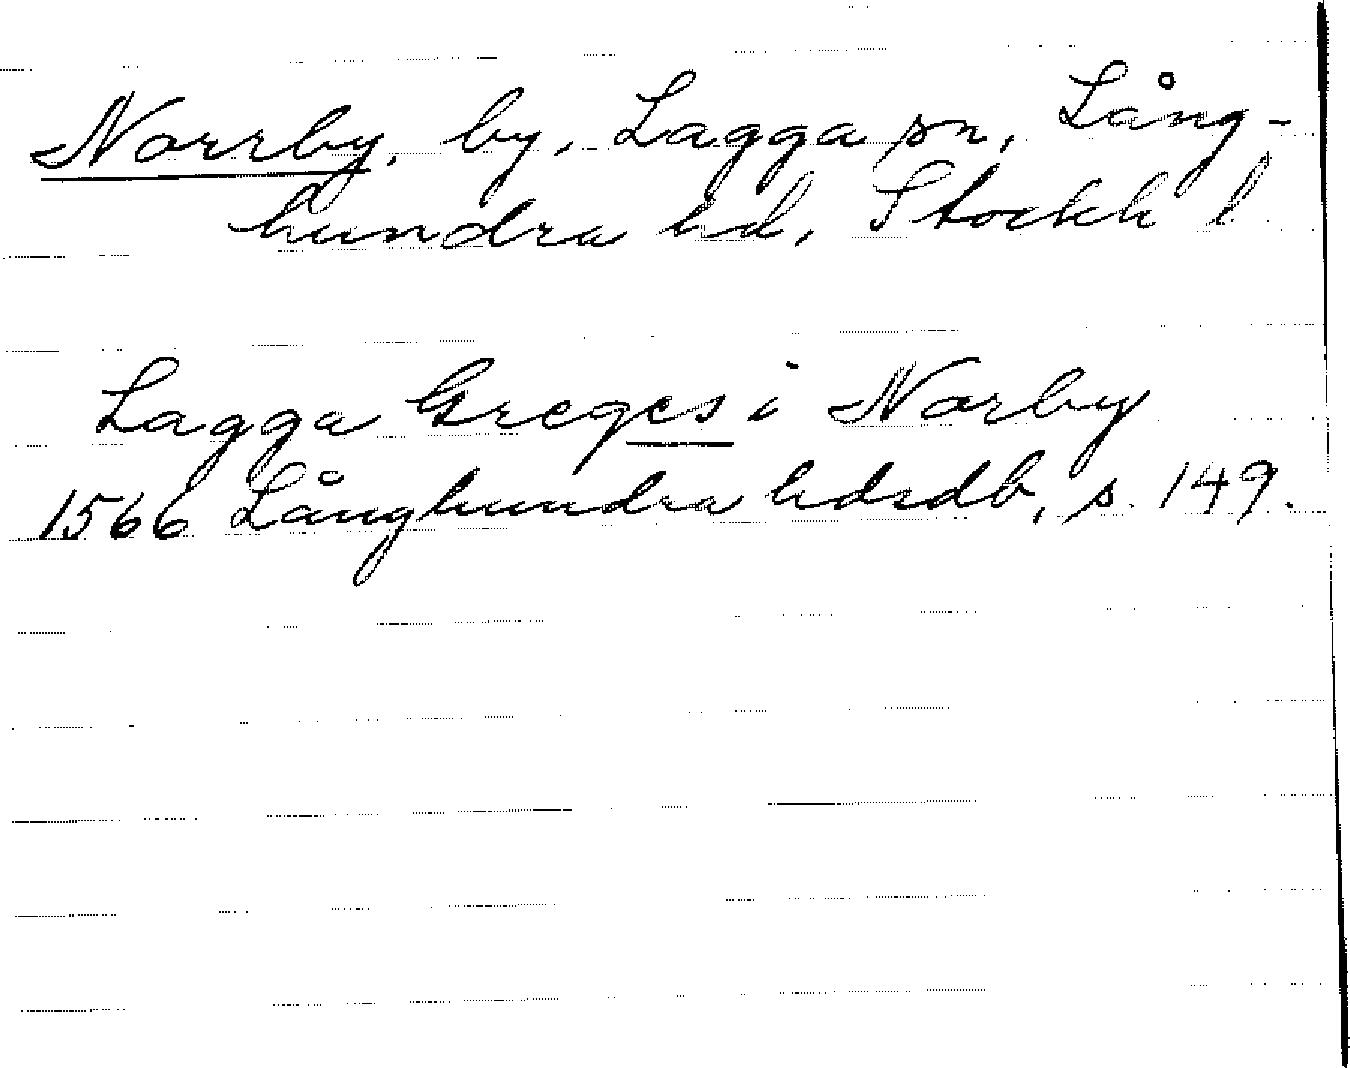 Norrby, by, Lagga sn, Lång-
hundra hd, Stockh l
Lagga Greges i Norby
1566 Långhundra hdrdb, s. 149.